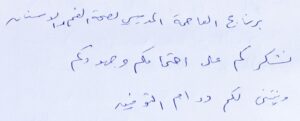 برنامج العاصمة المدرسي لصحة الفم والاسنان
نشكركم على اهتمامكم وجهودكم
ونتمنى لكم دوام التوفيق